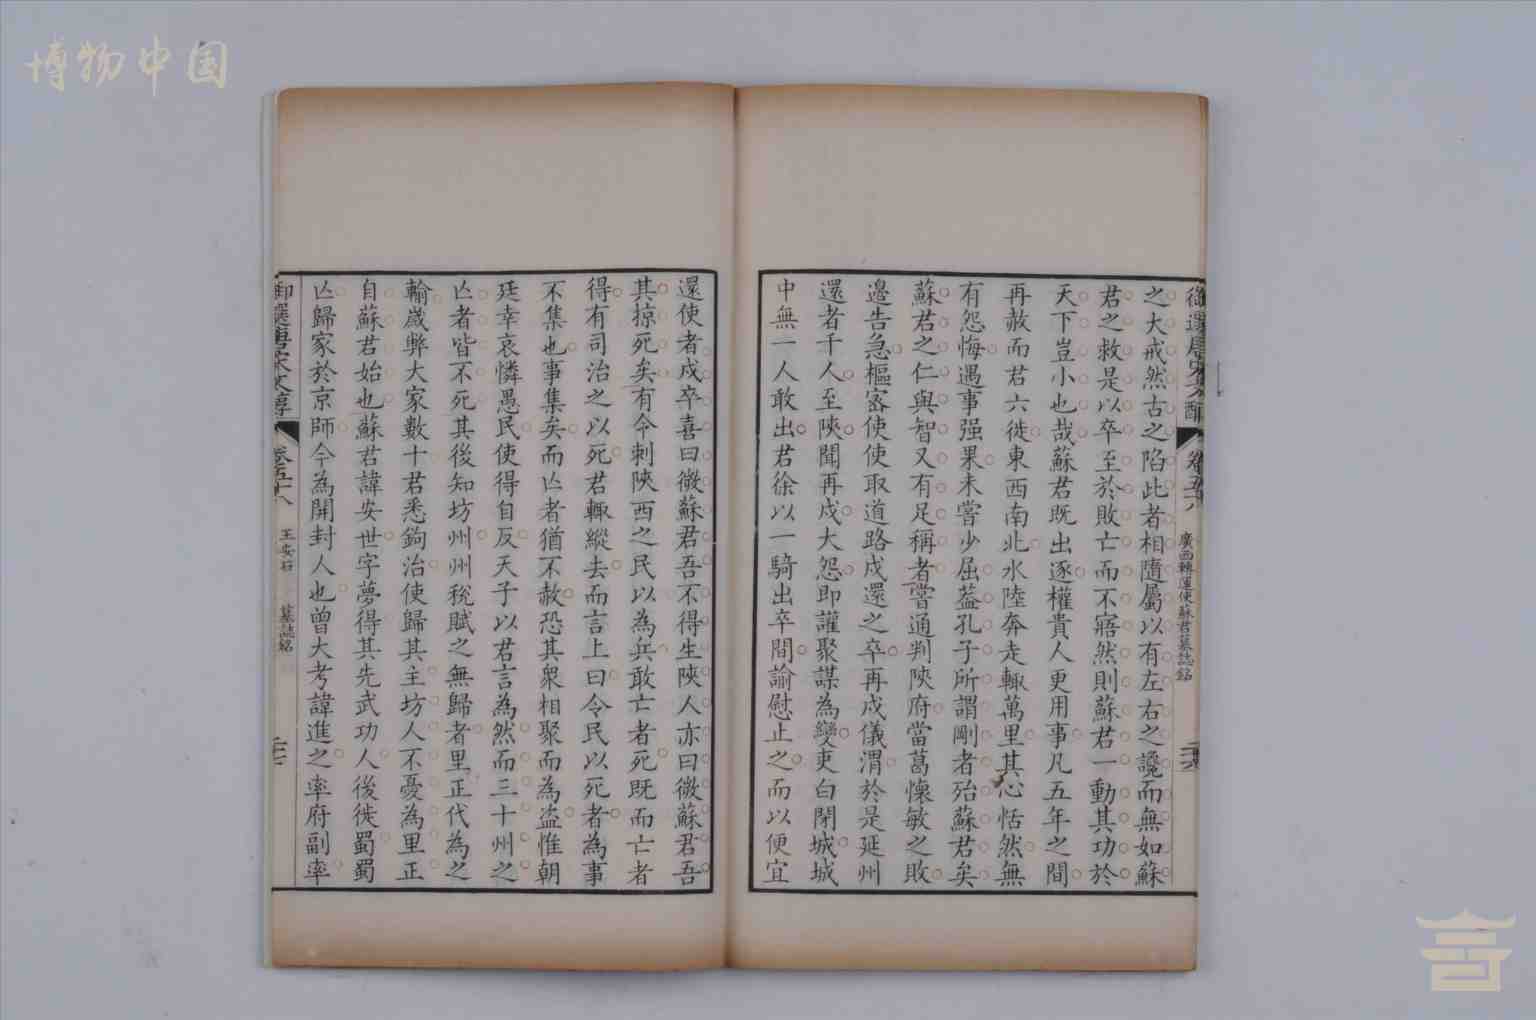 博物中国
御選唐宋文醇
卷五十八
廣西轉運使蘇君墓誌銘
之大戒然古之陷此者相隨屬以有左右之讒而無如蘇
君之救是以卒至於敗亡而不寤然則蘇君一動其功於
天下豈小也哉蘇君既出逐權貴人更用事凡五年之間
再赦而君六徙東西南北水陸奔走輙萬里其心恬然無
有怨悔遇事强果未嘗少屈葢孔子所謂剛者殆蘇君矣
蘇君之仁與智又有足稱者嘗通判陜府當葛懷敏之敗
邉告急樞宻使使取道路戍還之卒再戍儀渭於是延州
還者千人至陜聞再戍大怨即讙聚謀為變吏白閉城城
中無一人敢出君徐以一騎出卒間諭慰止之而以便宜
還使者戍卒喜曰微蘇君吾不得生陜人亦曰微蘇君吾
其掠死矣有令刺陜西之民以為兵敢亡者死既而亡者
得有司治之以死君輙縱去而言上曰令民以死者為事
不集也事集矣而亾者猶不赦恐其衆相聚而為盗惟朝
廷幸哀憐愚民使得自反天子以君言為然而三十州之
亾者皆不死其後知坊州州稅賦之無歸者里正代為之
輸歲弊大家數十君悉鉤治使歸其主坊人不憂為里正
自蘇君始也蘇君諱安世字夢得其先武功人後徙蜀蜀
亾歸家於京師今為開封人也曾大考諱進之率府副率
御選唐宋文醇
卷五十八
王安石
墓誌銘